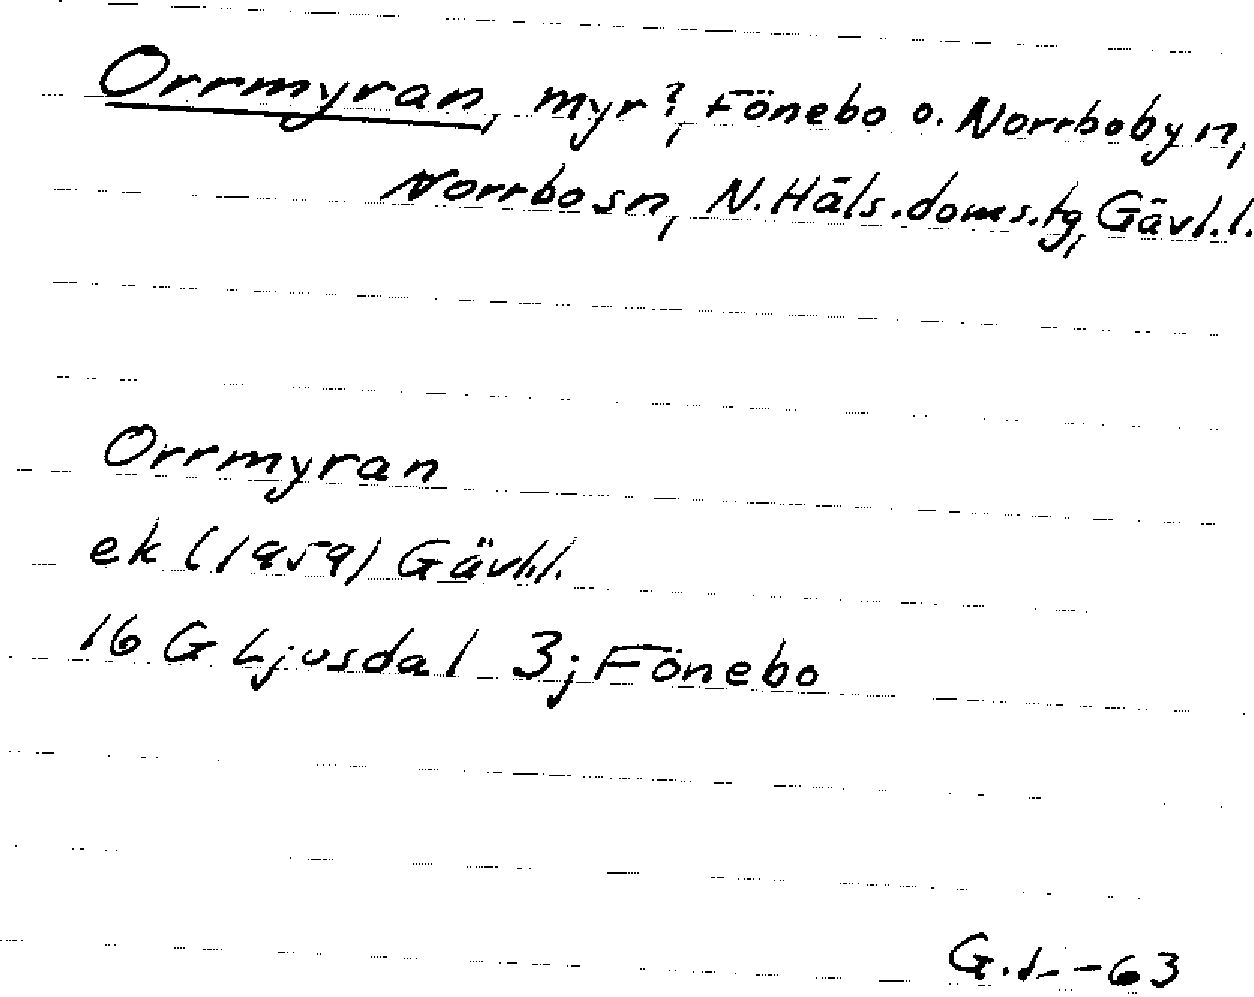 Orrmyran, myr?, Fönebo o. Norrbobyn,
Norrbo sn, N. Häls. doms.tg, Gävl.l.
Orrmyran
ek (1959) Gävl.l.
16 G Ljusdal 3; Fönebo
-63